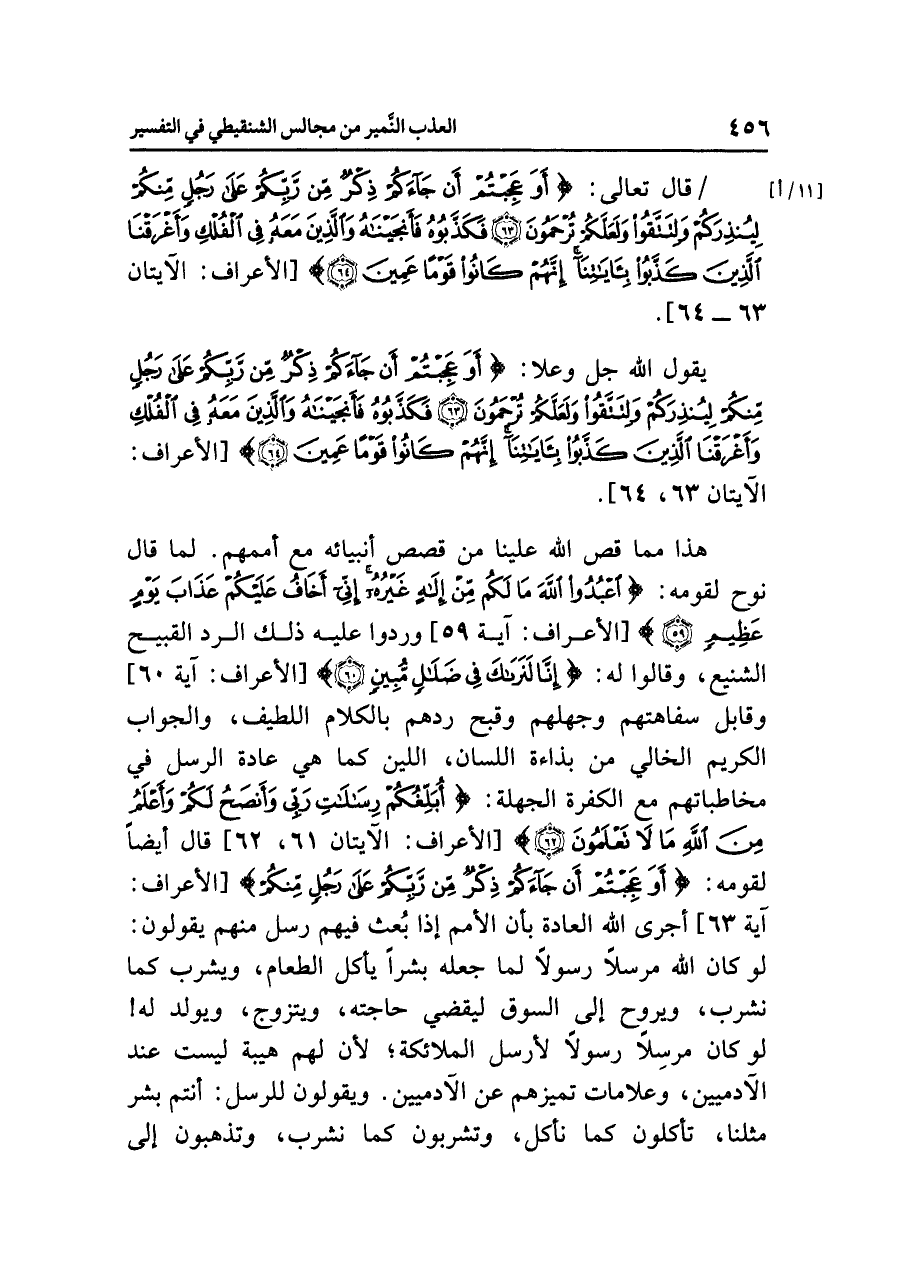 ٤٥٦ العذب النَّمير من مجالس الشنقيطي في التفسير
[١١/أ] / قال تعالى: ﴿ أَوَعَجِبْتُمْ أَن جَآءَكُمْ ذِكْرٌ مِّن رَّبِّكُمْ عَلَىٰ رَجُلٍ مِّنكُمْ
لِيُنذِرَكُمْ وَلِتَتَّقُوا۟ وَلَعَلَّكُمْ تُرْحَمُونَ ٦٣ فَكَذَّبُوهُ فَأَنجَيْنَٰهُ وَٱلَّذِينَ مَعَهُۥ فِى ٱلْفُلْكِ وَأَغْرَقْنَا
ٱلَّذِينَ كَذَّبُوا۟ بِـَٔايَٰتِنَآ إِنَّهُمْ كَانُوا۟ قَوْمًا عَمِينَ ٦٤ ﴾ [الأعراف: الآيتان
٦٣ ــ ٦٤].
يقول الله جل وعلا: ﴿ أَوَعَجِبْتُمْ أَن جَآءَكُمْ ذِكْرٌ مِّن رَّبِّكُمْ عَلَىٰ رَجُلٍ
مِّنكُمْ لِيُنذِرَكُمْ وَلِتَتَّقُوا۟ وَلَعَلَّكُمْ تُرْحَمُونَ ٦٣ فَكَذَّبُوهُ فَأَنجَيْنَٰهُ وَٱلَّذِينَ مَعَهُۥ فِى ٱلْفُلْكِ
وَأَغْرَقْنَا ٱلَّذِينَ كَذَّبُوا۟ بِـَٔايَٰتِنَآ إِنَّهُمْ كَانُوا۟ قَوْمًا عَمِينَ ٦٤ ﴾ [الأعراف:
الآيتان ٦٣، ٦٤].
هذا مما قص الله علينا من قصص أنبيائه مع أممهم. لما قال
نوح لقومه: ﴿ ٱعْبُدُوا۟ ٱللَّهَ مَا لَكُم مِّنْ إِلَٰهٍ غَيْرُهُۥٓ إِنِّىٓ أَخَافُ عَلَيْكُمْ عَذَابَ يَوْمٍ
عَظِيمٍ ٥٩ ﴾ [الأعراف: آية ٥٩] وردوا عليه ذلك الرد القبيح
الشنيع، وقالوا له: ﴿ إِنَّا لَنَرَىٰكَ فِى ضَلَٰلٍ مُّبِينٍ ٦٠ ﴾ [الأعراف: آية ٦٠]
وقابل سفاهتهم وجهلهم وقبح ردهم بالكلام اللطيف، والجواب
الكريم الخالي من بذاءة اللسان، اللين كما هي عادة الرسل في
مخاطباتهم مع الكفرة الجهلة: ﴿ أُبَلِّغُكُمْ رِسَٰلَٰتِ رَبِّى وَأَنصَحُ لَكُمْ وَأَعْلَمُ
مِنَ ٱللَّهِ مَا لَا تَعْلَمُونَ ٦٢ ﴾ [الأعراف: الآيتان ٦١، ٦٢] قال أيضاً
لقومه: ﴿ أَوَعَجِبْتُمْ أَن جَآءَكُمْ ذِكْرٌ مِّن رَّبِّكُمْ عَلَىٰ رَجُلٍ مِّنكُمْ ﴾ [الأعراف:
آية ٦٣] أجرى الله العادة بأن الأمم إذا بُعث فيهم رسل منهم يقولون:
لو كان الله مرسلاً رسولاً لما جعله بشراً يأكل الطعام، ويشرب كما
نشرب، ويروح إلى السوق ليقضي حاجته، ويتزوج، ويولد له!
لو كان مرسِلاً رسولاً لأرسل الملائكة؛ لأن لهم هيبة ليست عند
الآدميين، وعلامات تميزهم عن الآدميين. ويقولون للرسل: أنتم بشر
مثلنا، تأكلون كما نأكل، وتشربون كما نشرب، وتذهبون إلى